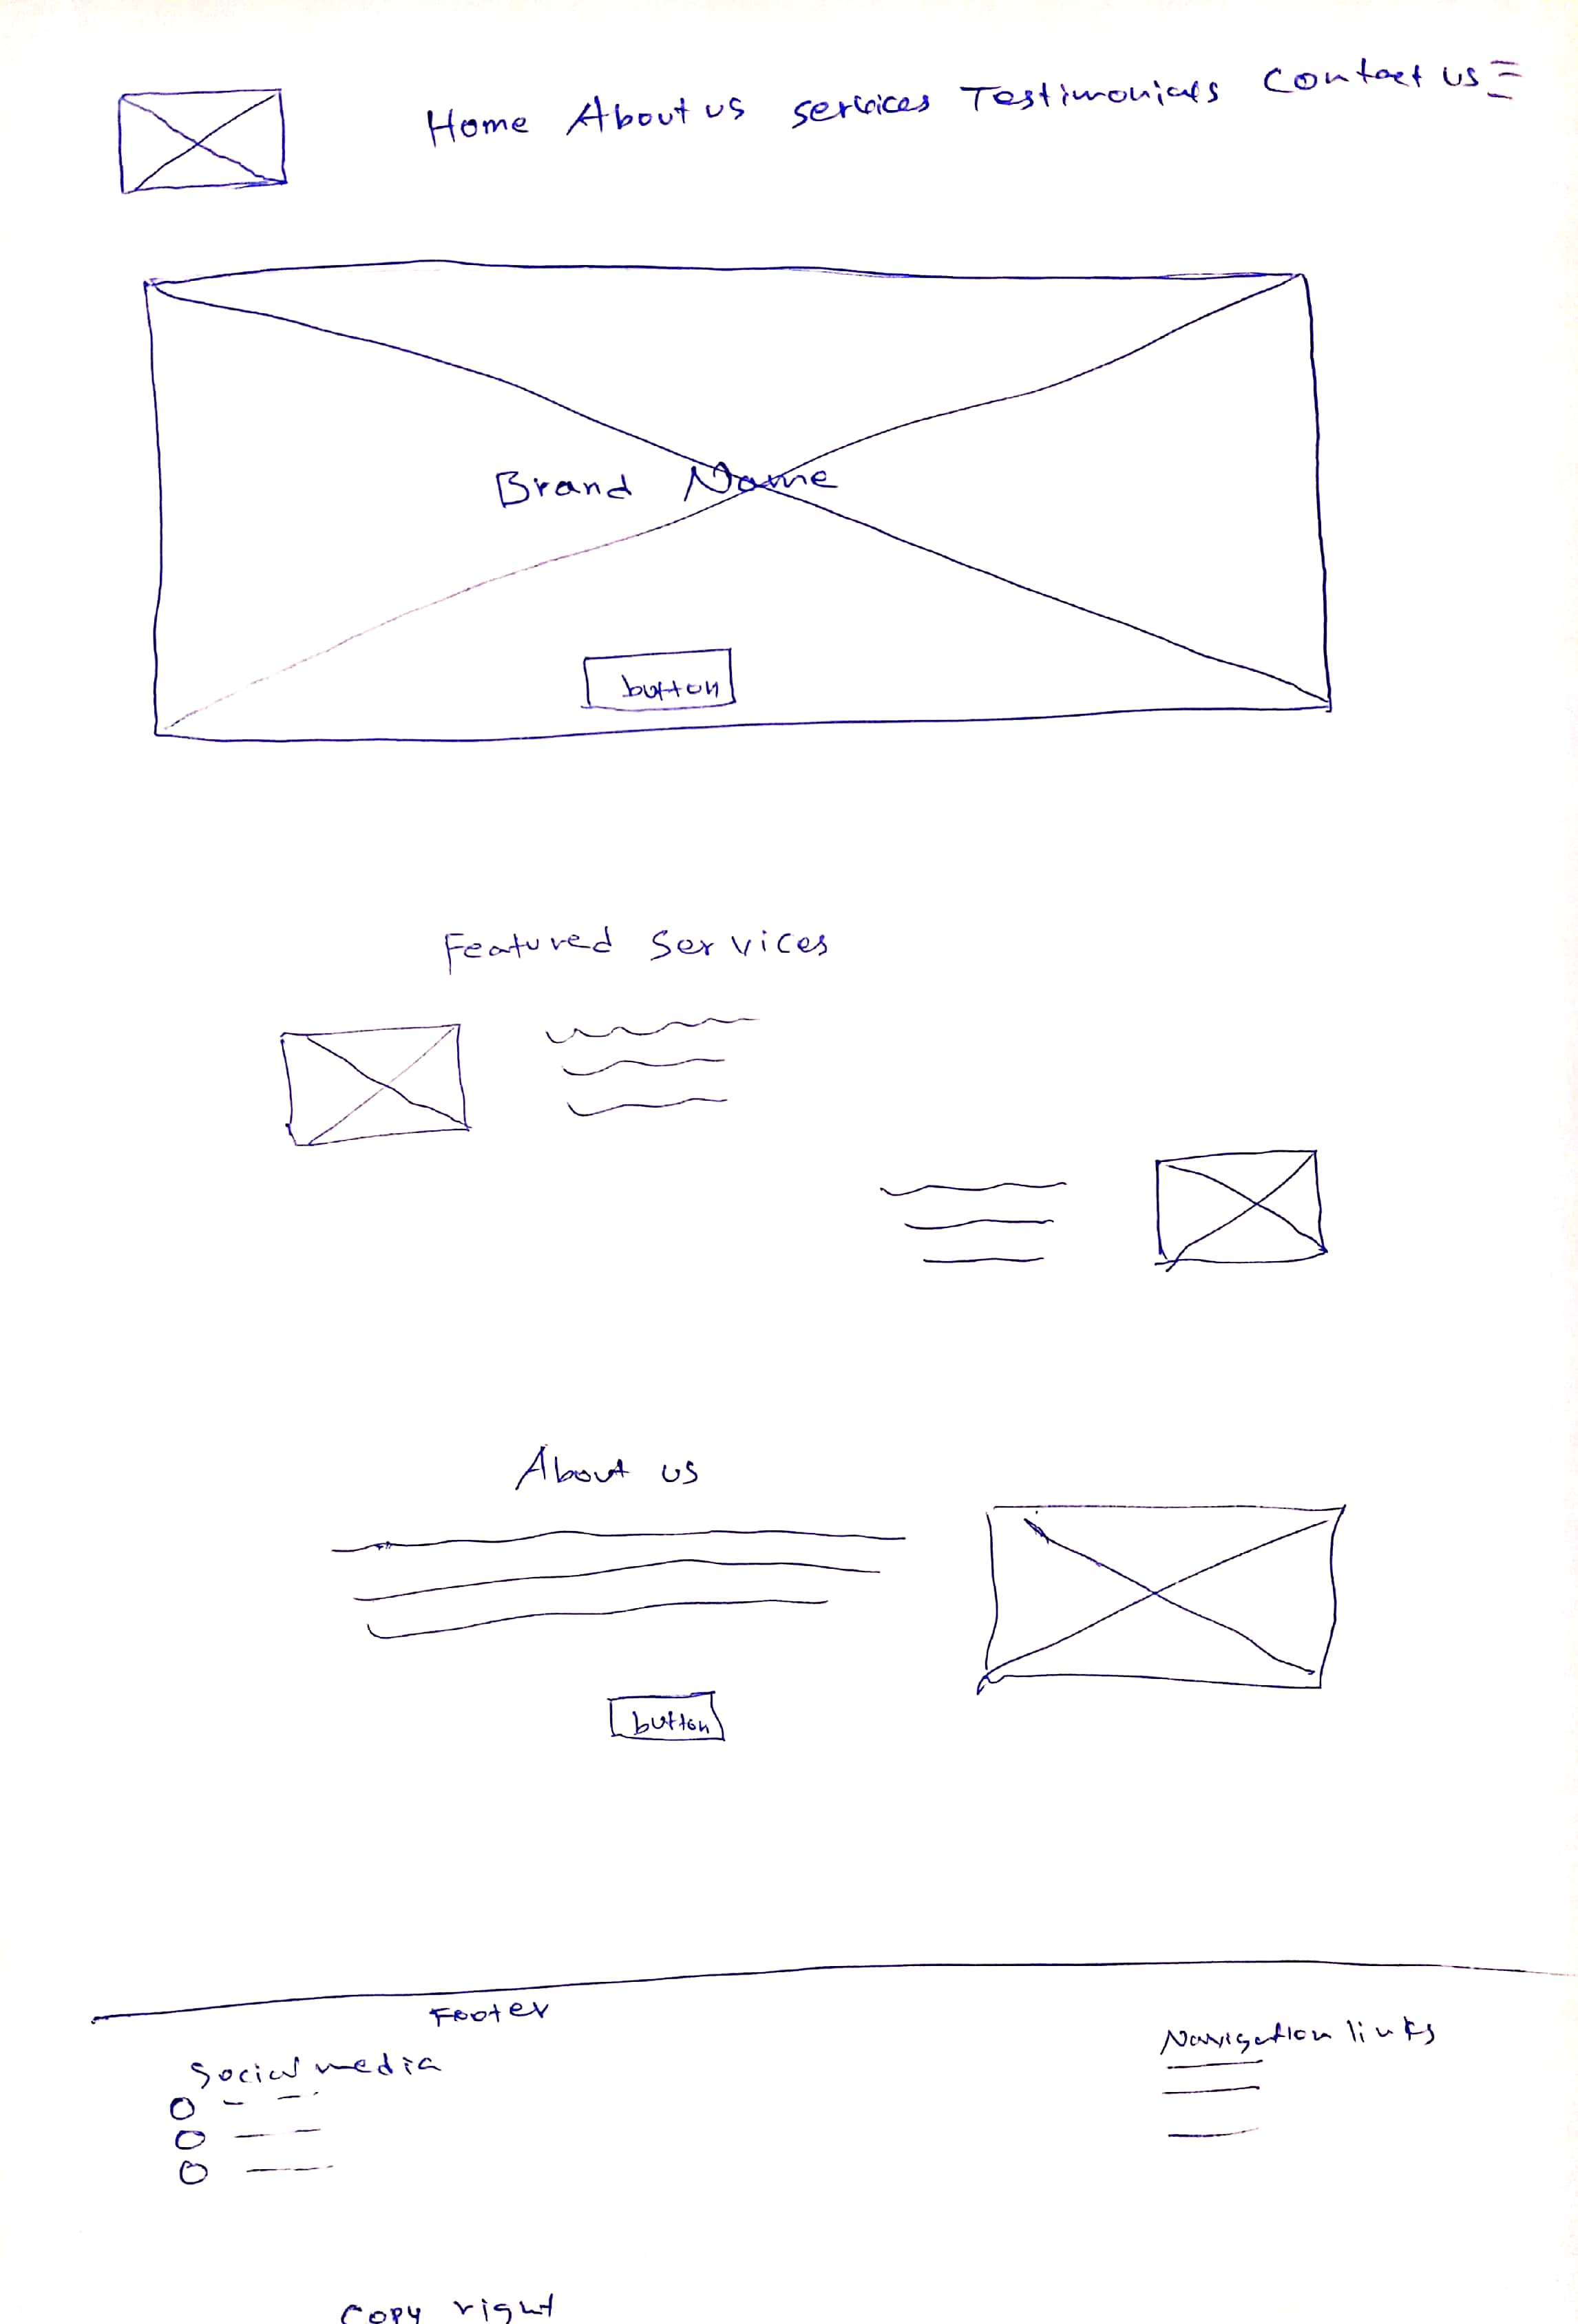 Home About us services Testimonials Contact us
Brand Name
button
Featured Services
About us
button
Footer
Social media
Navigation links
Copy right